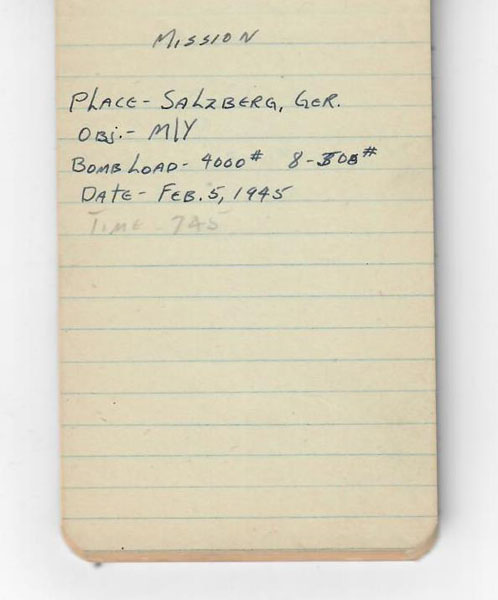 MISSION
PLACE- SALZBERG, GER.
OBJ.- M/Y
BOMB LOAD- 4000# 8-500#
DATE- FEB. 5, 1945
TIME 745